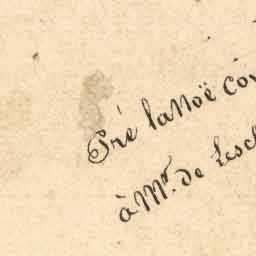 Pré la Noë Cou
à Mr. de Lesc